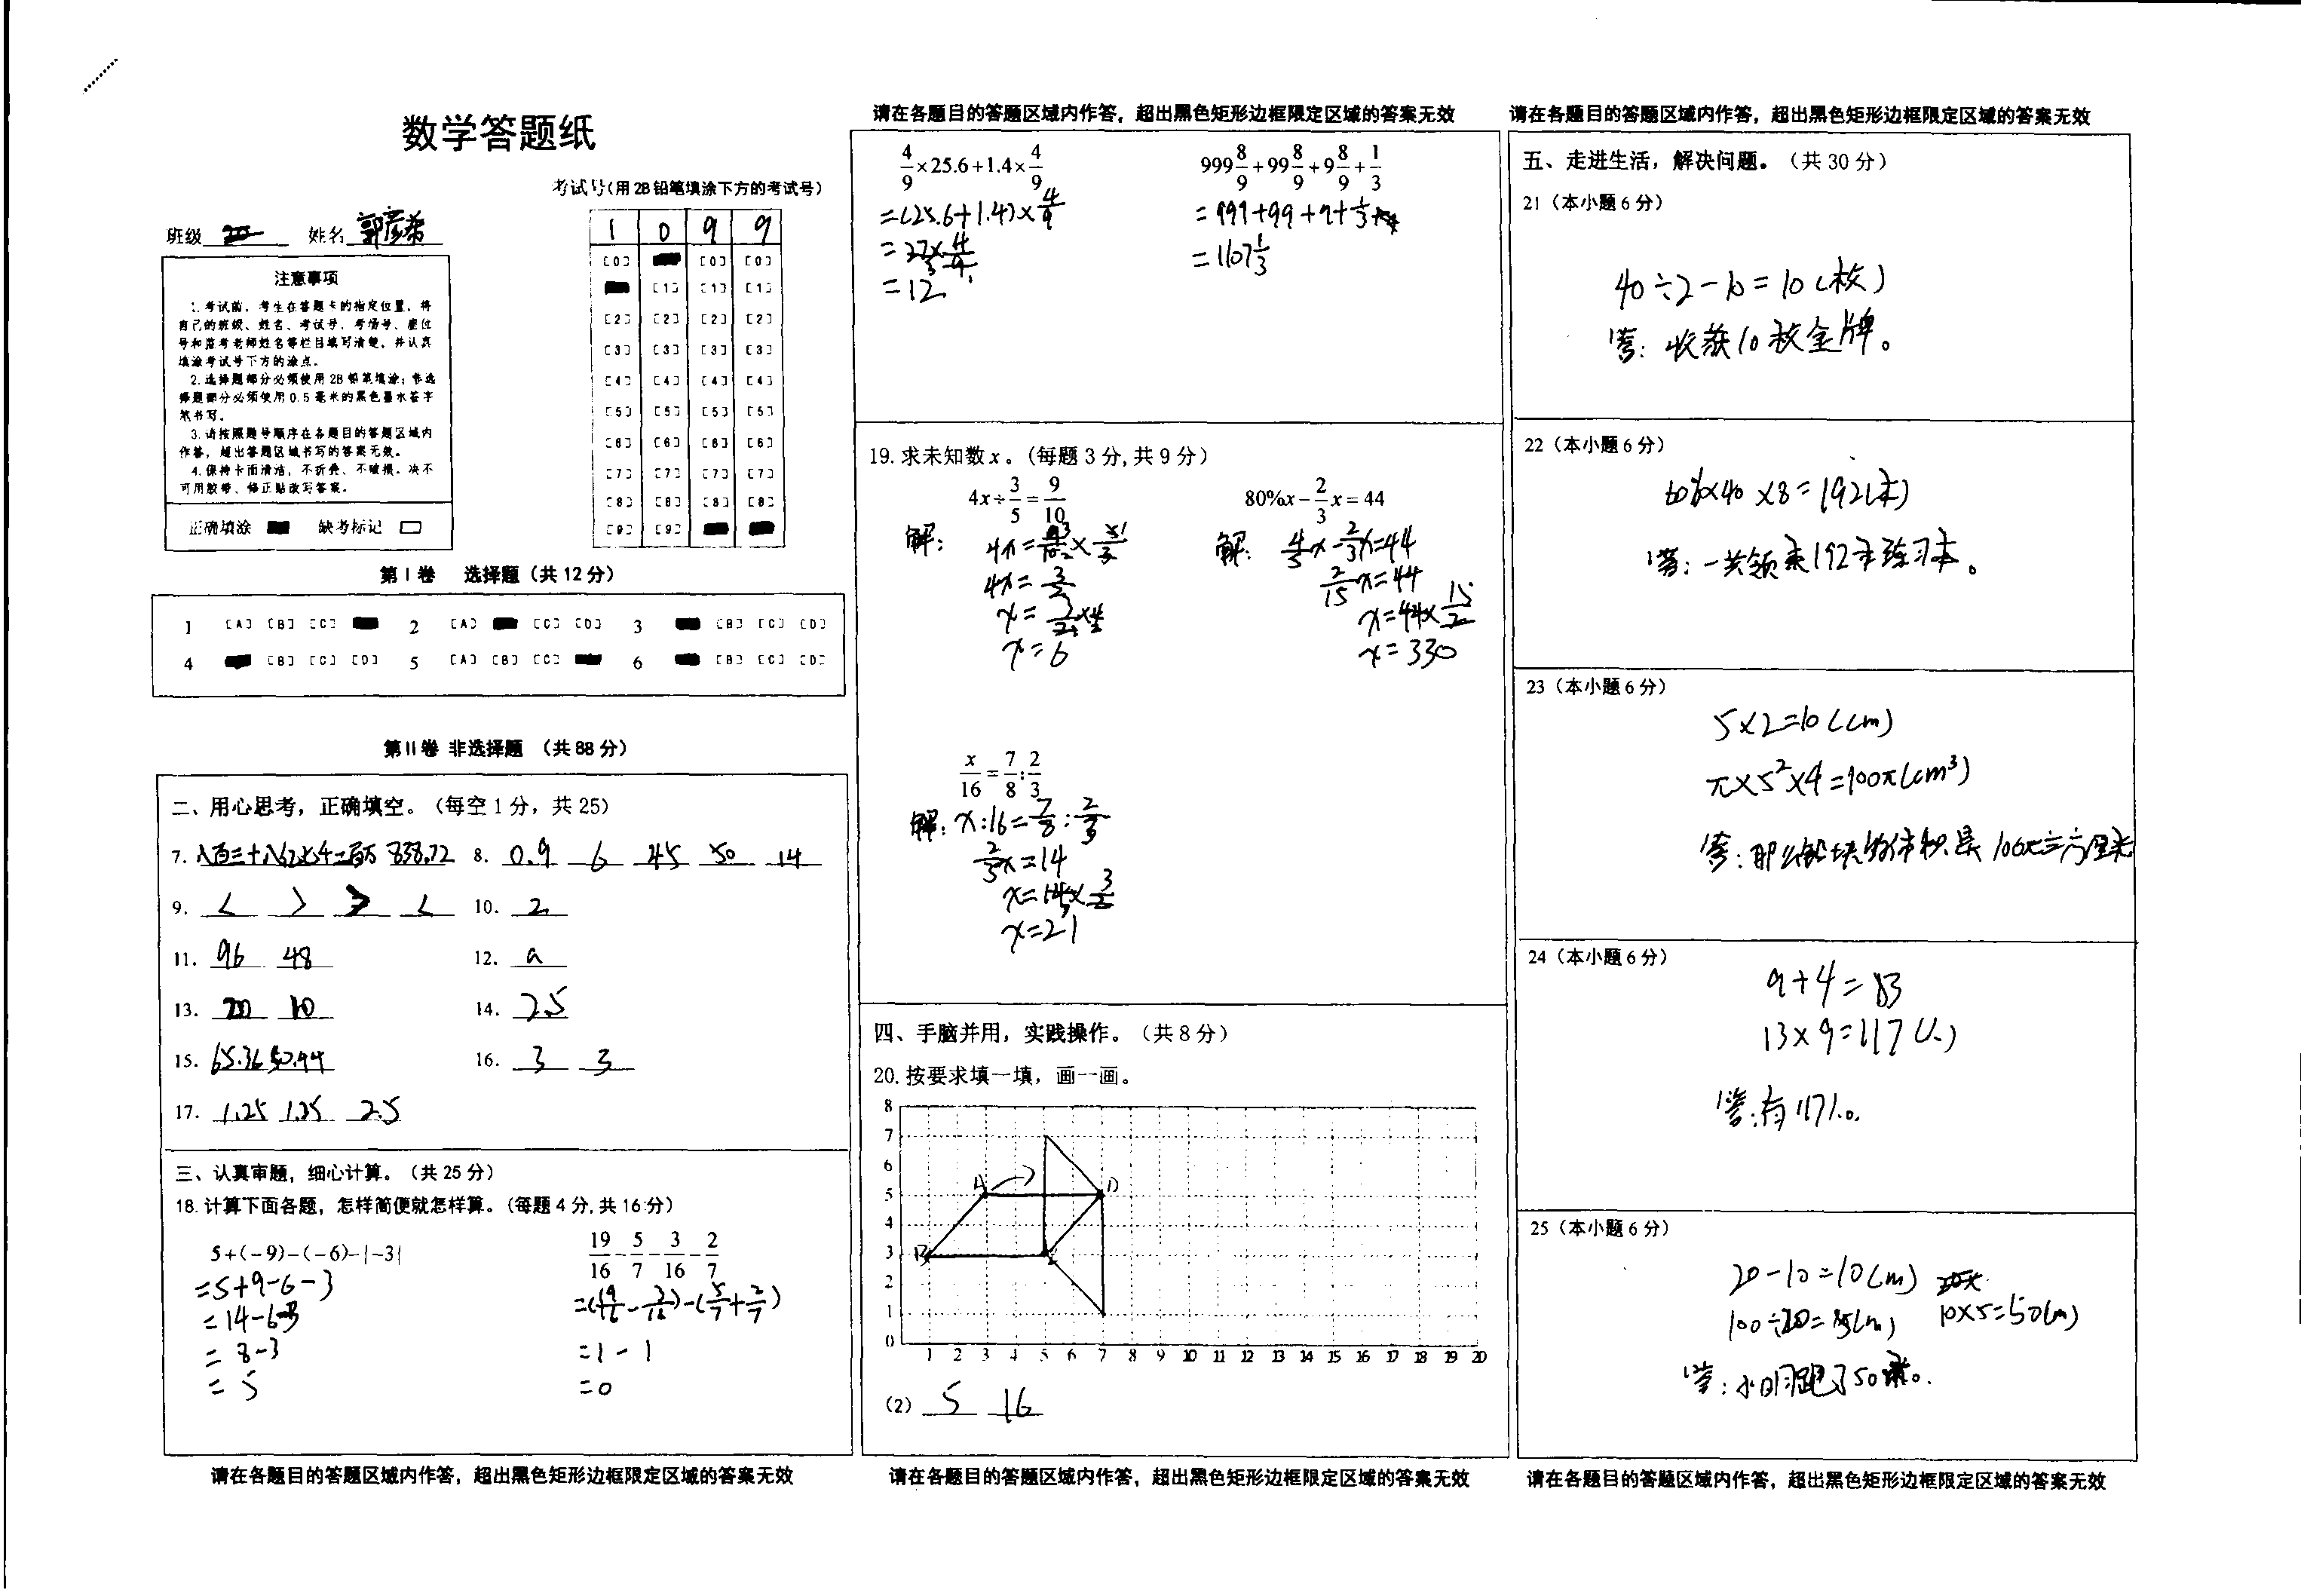 数学答题纸
考试号(用2B铅笔填涂下方的考试号)
班级 姓名 郭彦希
1 0 9 9
[0] [0] [0]
[1] [1] [1]
[2] [2] [2] [2]
[3] [3] [3] [3]
[4] [4] [4] [4]
[5] [5] [5] [5]
[6] [6] [6] [6]
[7] [7] [7] [7]
[8] [8] [8] [8]
[9] [9]
注意事项
1.考试前,考生在答题卡的指定位置,将
自己的班级、姓名、考试号、考场号、座位
号和监考老师姓名等栏目填写清楚,并认真
填涂考试号下方的涂点。
2.选择题部分必须使用2B铅笔填涂;非选
择题部分必须使用0.5毫米的黑色墨水签字
笔书写。
3.请按照题号顺序在各题目的答题区域内
作答,超出答题区域书写的答案无效。
4.保持卡面清洁,不折叠、不破损。决不
可用胶带、修正贴改写答案。
正确填涂 缺考标记
第Ⅰ卷 选择题(共12分)
1 [A] [B] [C] 2 [A] [C] [D] 3 [B] [C] [D]
4 [B] [C] [D] 5 [A] [B] [C] 6 [B] [C] [D]
第Ⅱ卷 非选择题 (共88分)
二、用心思考,正确填空。(每空1分,共25)
7. 838.72 8. 0.9 6 45 50 14
9. < > > < 10. 2
11. 96 48 12. a
13. 20 10 14. 25
15. 65.36 50.44 16. 3 3
17. 1.25 1.25 2.5
三、认真审题,细心计算。(共25分)
18.计算下面各题,怎样简便就怎样算。(每题4分,共16分)
5+(-9)-(-6)-|-3|
=5+9-6-3
=14-6-3
=8-3
=5
19/16-5/7-3/16-2/7
=(19/16-3/16)-(5/7+2/7)
=1-1
=0
请在各题目的答题区域内作答,超出黑色矩形边框限定区域的答案无效
请在各题目的答题区域内作答,超出黑色矩形边框限定区域的答案无效
4/9×25.6+1.4×4/9
=(25.6+1.4)×4/9
=27×4/9
=12
999 8/9+99 8/9+9 8/9+1/3
=999+99+9+1/3
=1107 1/3
19.求未知数x。(每题3分,共9分)
4x÷3/5=9/10
解: 4x=9/10×5/3
4x=3/2
x=3/2×4
x=6
80%x-2/3x=44
解: 4/5x-2/3x=44
2/15x=44
x=44×15/2
x=330
x/16=7/8:2/3
解: x:16=7/8:2/3
2/3x=14
x=14×3/2
x=21
四、手脑并用,实践操作。(共8分)
20.按要求填一填,画一画。
8
7
6
5 A D
4
3 B
2
1
0
1 2 3 4 5 6 7 8 9 10 11 12 13 14 15 16 17 18 19 20
(2) 5 16
请在各题目的答题区域内作答,超出黑色矩形边框限定区域的答案无效
请在各题目的答题区域内作答,超出黑色矩形边框限定区域的答案无效
五、走进生活,解决问题。(共30分)
21(本小题6分)
40÷2-10=10(枚)
答:收获10枚金牌。
22(本小题6分)
60%×40×8=192(本)
答:一共领来192本练习本。
23(本小题6分)
5×2=10(cm)
π×5²×4=100π(cm³)
答:那么铅块的体积是100π立方厘米
24(本小题6分)
9+4=13
13×9=117(人)
答:有117人。
25(本小题6分)
20-10=10(m)
100÷20=5(m) 10×5=50(m)
答:小明跑了50米。
请在各题目的答题区域内作答,超出黑色矩形边框限定区域的答案无效